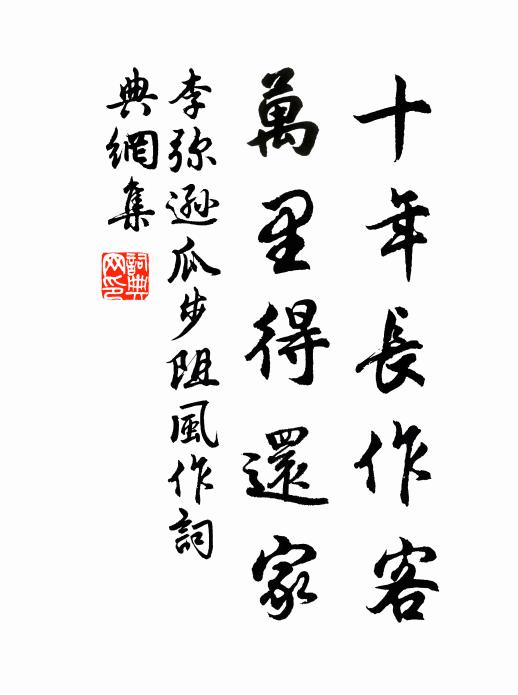 十年長作客
萬里得還家
李弥遜瓜步阻風作詞
典網集
詞典网印